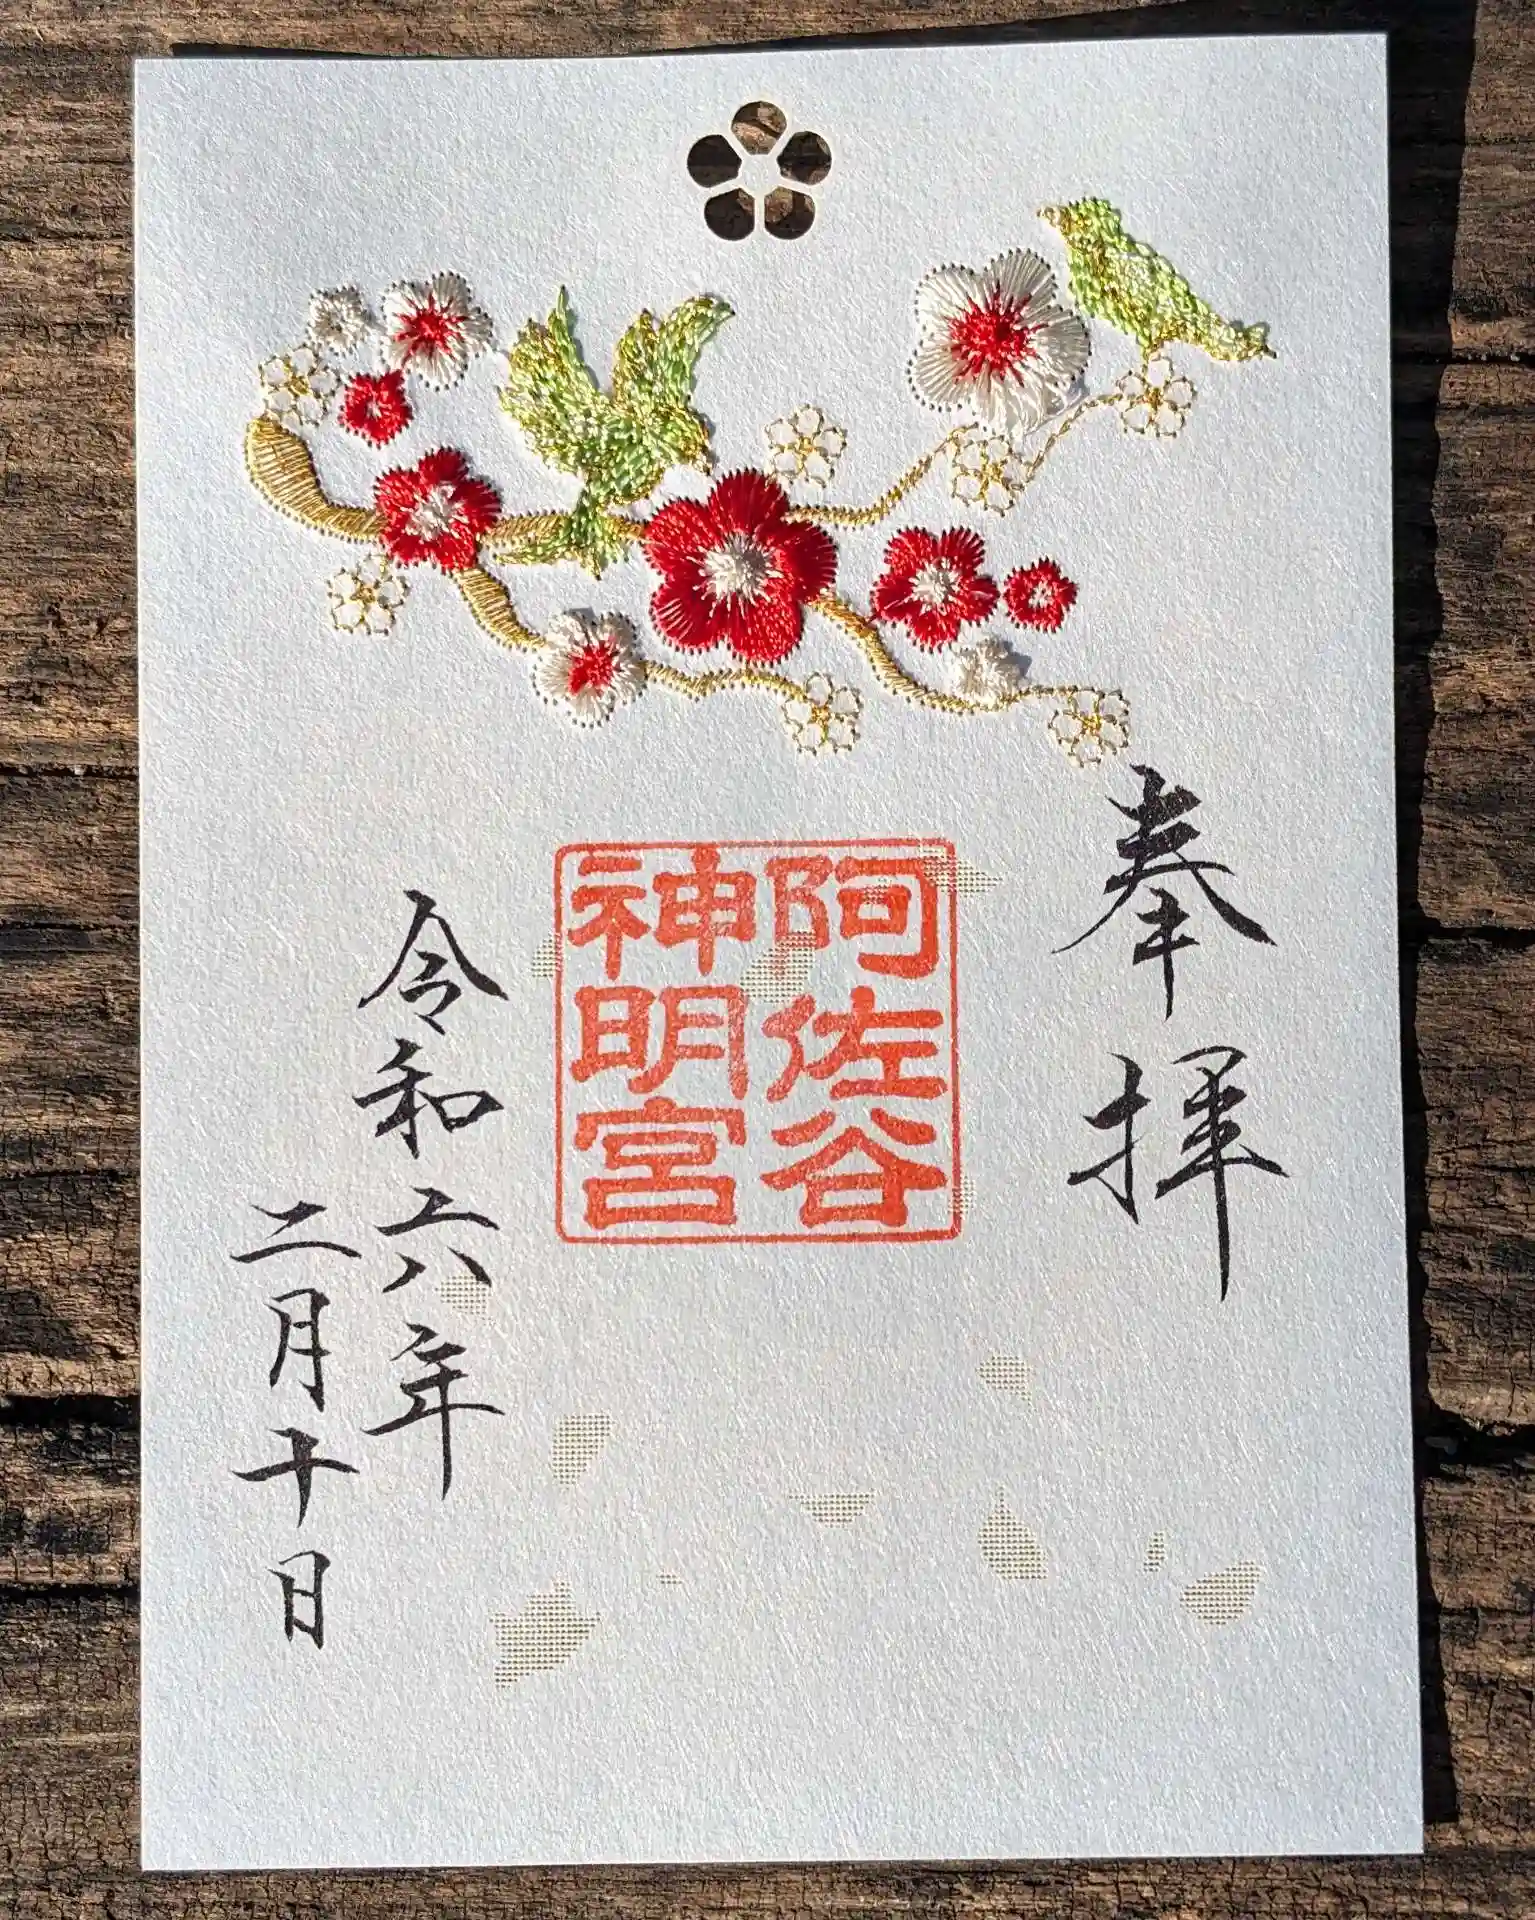 奉拝
阿佐谷
神明宮
令和六年
二月十日